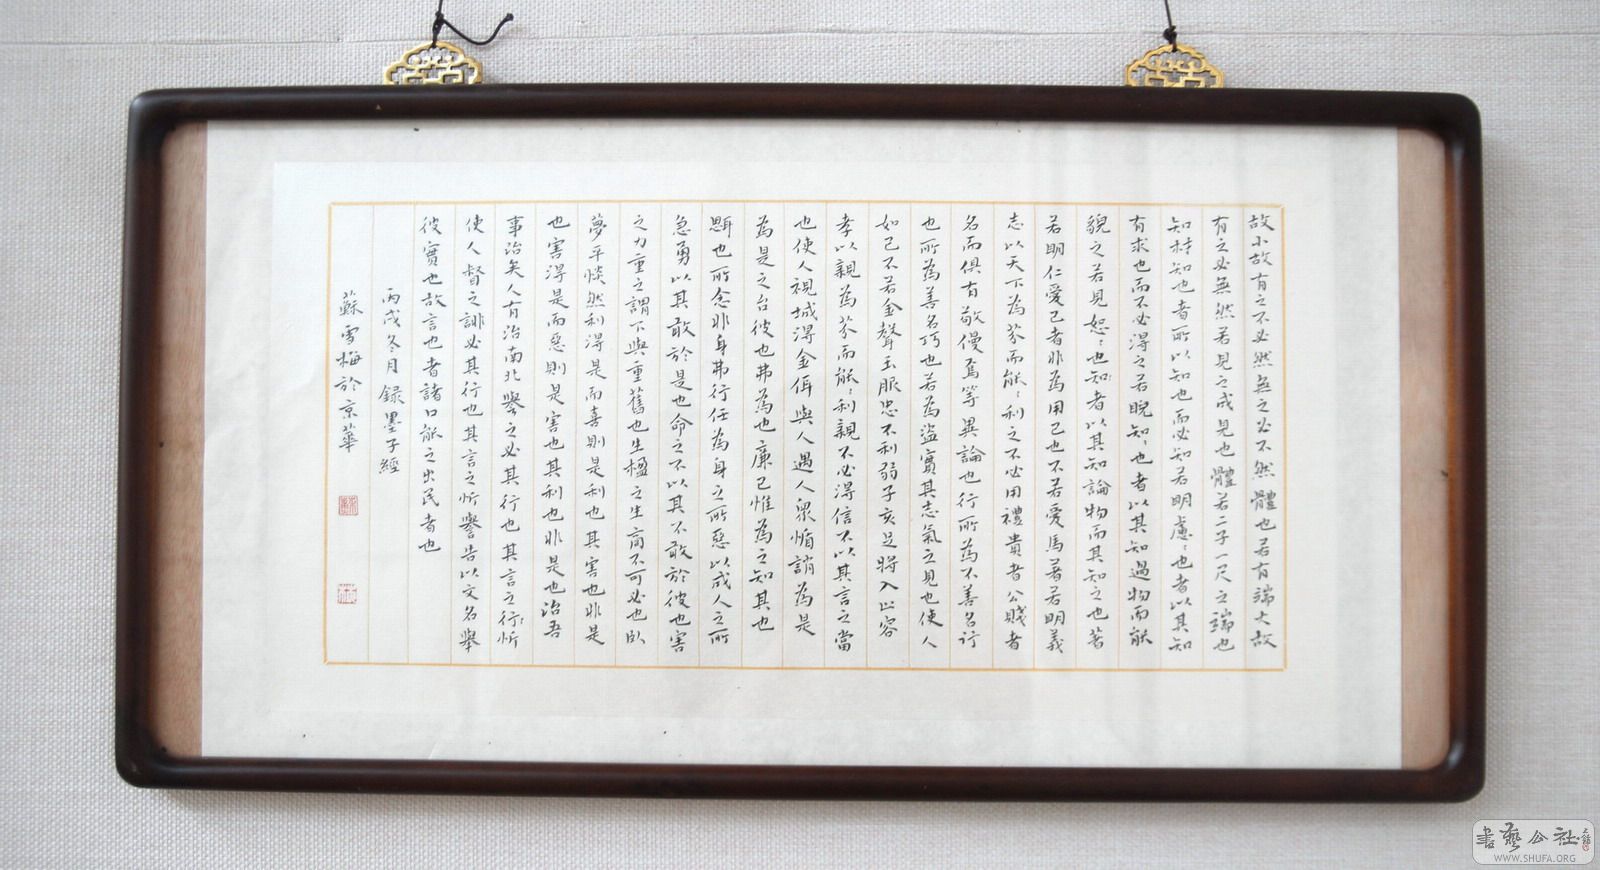 故小故有之不必然無之必不然體也若有端大故
有之必無然若見之成見也體若二子一尺之端也
知材知也者所以知也而必知若明慮〻也者以其知
有求也而不必得之若睨知〻也者以其知過物而能
貌之若見恕〻也知者以其知論物而其知之也著
若明仁愛己者非為用己也不若愛馬著若明義
志以天下為芬而能〻利之不必用禮貴者公賤者
名而俱有敬僈焉等異論也行所為不善名行
也所為善名巧也若為盜實其志氣之見也使人
如己不若金聲玉服忠不利弱子亥足將入止容
孝以親為芬而能〻利親不必得信不以其言之當
也使人視城得金佴與人遇人眾惛誚為是
為是之台彼也弗為也廉己惟為之知其也
也所念非身弗行任為身之所惡以成人之所
急勇以其敢於是也命之不以其不敢於彼也害
之力重之謂下與重舊也生楹之生商不可必也臥
夢平惔然利得是而喜則是利也其害也非是
也害得是而惡則是害也其利也非是也治吾
事治矣人有治南北譽之必其行也其言之行忻
使人督之誹必其行也其言之忻譽告以文名舉
彼實也故言也者諸口能之出民者也
丙戌冬月錄墨子經
蘇雪梅於京華
書藝公社
WWW.SHUFA.ORG